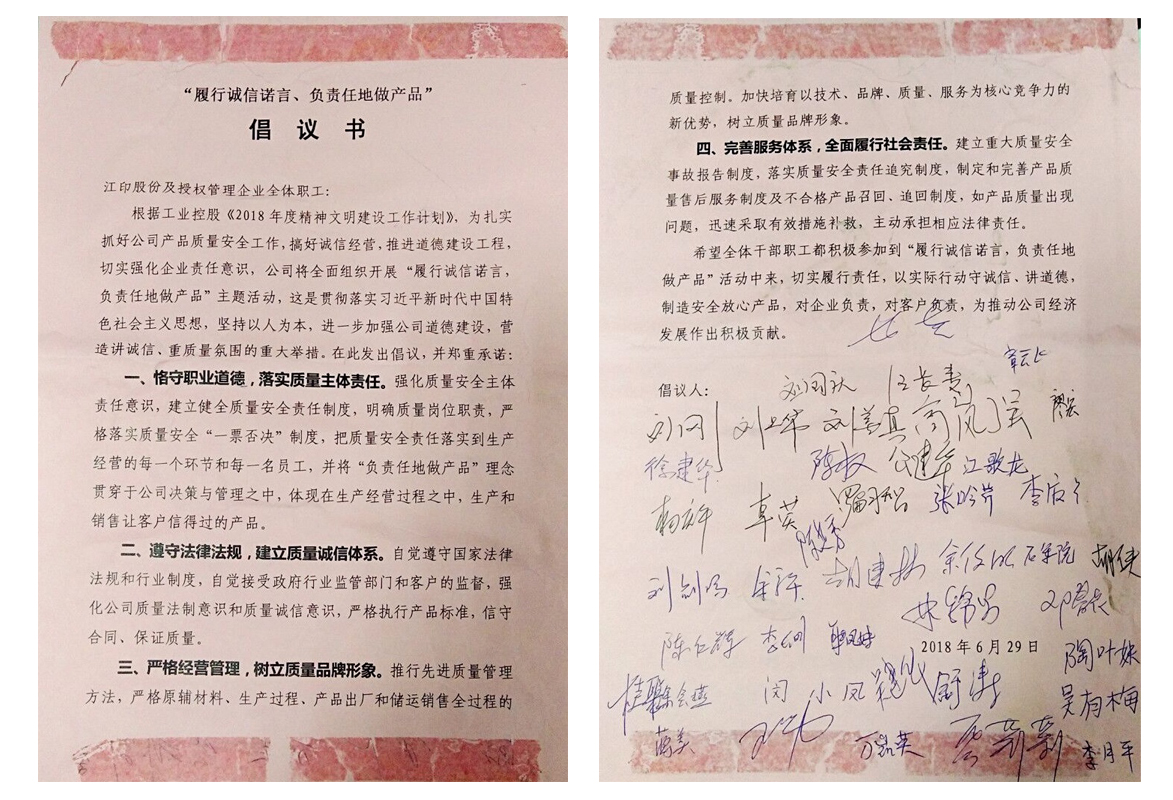 “履行诚信诺言、负责任地做产品”
倡 议 书
江印股份及授权管理企业全体职工：
根据工业控股《2018 年度精神文明建设工作计划》，为扎实
抓好公司产品质量安全工作，搞好诚信经营，推进道德建设工程，
切实强化企业责任意识，公司将全面组织开展“履行诚信诺言，
负责任地做产品”主题活动，这是贯彻落实习近平新时代中国特
色社会主义思想，坚持以人为本，进一步加强公司道德建设，营
造讲诚信、重质量氛围的重大举措。在此发出倡议，并郑重承诺：
一、恪守职业道德，落实质量主体责任。强化质量安全主体
责任意识，建立健全质量安全责任制度，明确质量岗位职责，严
格落实质量安全“一票否决”制度，把质量安全责任落实到生产
经营的每一个环节和每一名员工，并将“负责任地做产品”理念
贯穿于公司决策与管理之中，体现在生产经营过程之中，生产和
销售让客户信得过的产品。
二、遵守法律法规，建立质量诚信体系。自觉遵守国家法律
法规和行业制度，自觉接受政府行业监管部门和客户的监督，强
化公司质量法制意识和质量诚信意识，严格执行产品标准，信守
合同、保证质量。
三、严格经营管理，树立质量品牌形象。推行先进质量管理
方法，严格原辅材料、生产过程、产品出厂和储运销售全过程的
质量控制。加快培育以技术、品牌、质量、服务为核心竞争力的
新优势，树立质量品牌形象。
四、完善服务体系，全面履行社会责任。建立重大质量安全
事故报告制度，落实质量安全责任追究制度，制定和完善产品质
量售后服务制度及不合格产品召回、追回制度，如产品质量出现
问题，迅速采取有效措施补救，主动承担相应法律责任。
希望全体干部职工都积极参加到“履行诚信诺言，负责任地
做产品”活动中来，切实履行责任，以实际行动守诚信、讲道德，
制造安全放心产品，对企业负责，对客户负责，为推动公司经济
发展作出积极贡献。
倡议人：
徐建华 陈权 江歌龙
张吟芳
胡建林
陈仁辉
2018 年 6 月 29 日
陶叶妹
闵小凤 舒涛
吴有梅
万凯英 李月平